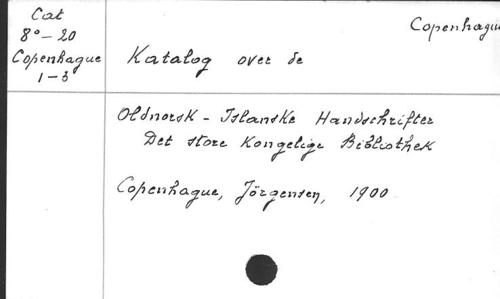 Cat
8°-20
Copenhague
1-3
Copenhague
Katalog over de
Oldnorsk - Islanske Handschrifter
Det store Kongelige Bibliothek
Copenhague, Jörgensen, 1900